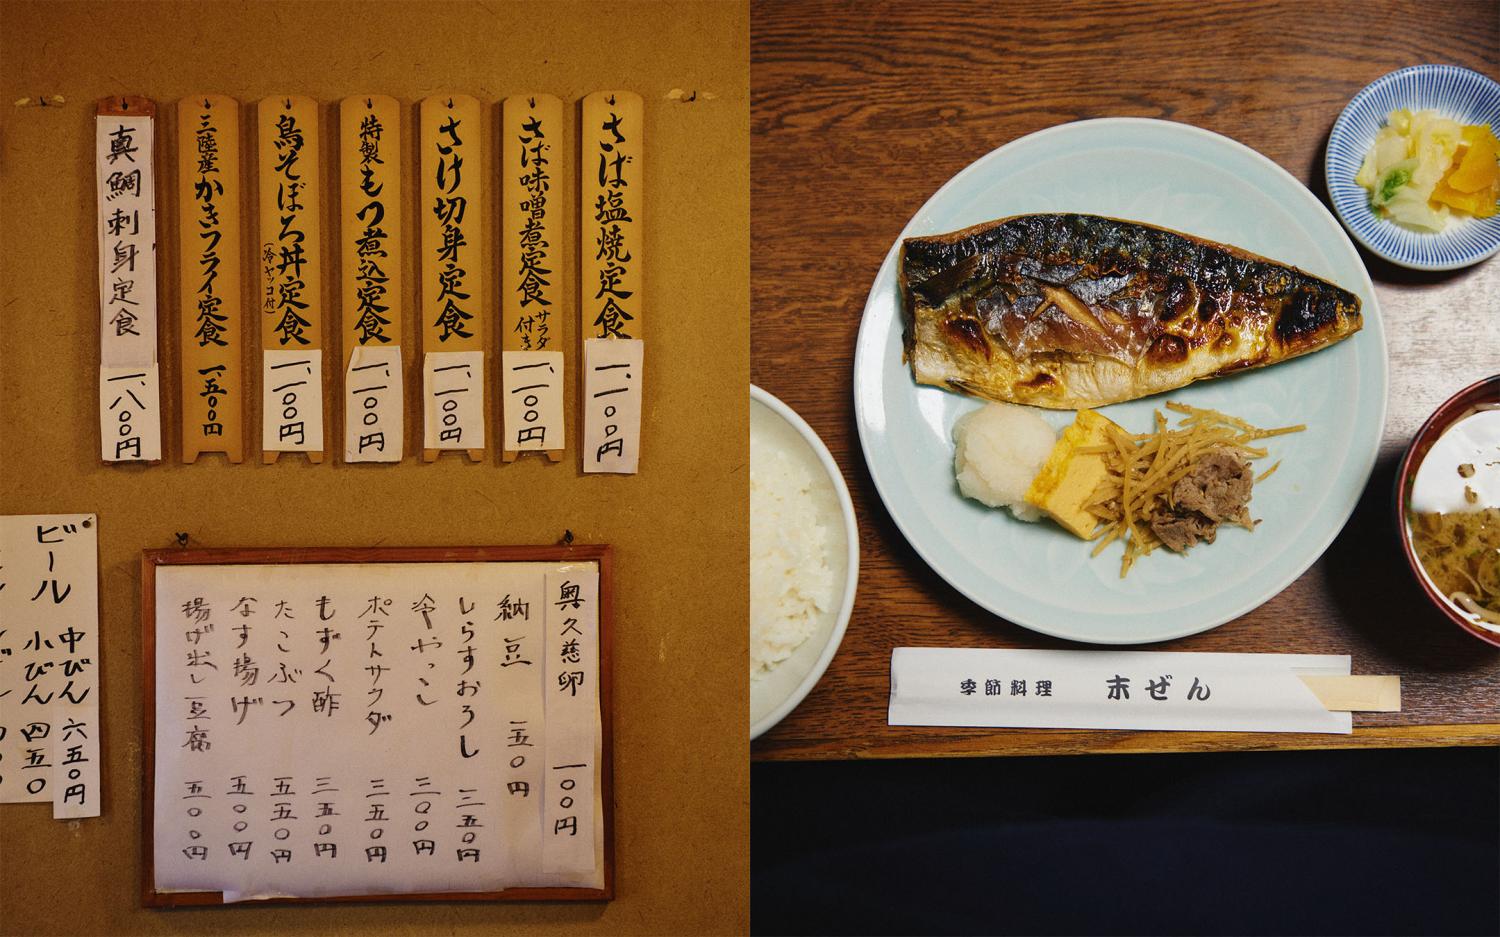 さば塩焼定食
一、一〇〇円
さば味噌煮定食
サラダ付き
一、一〇〇円
さけ切身定食
一、一〇〇円
特製もつ煮込定食
一、一〇〇円
鳥そぼろ丼定食
(冷ヤッコ付)
一、一〇〇円
三陸産かきフライ定食
一、五〇〇円
真鯛刺身定食
一、八〇〇円
奥久慈卵 一〇〇円
納豆 一五〇円
しらすおろし 三五〇円
冷やっこ 三〇〇円
ポテトサラダ 三五〇円
もずく酢 三五〇円
たこぶつ 五五〇円
なす揚げ 五〇〇円
揚げ出し豆腐 五〇〇円
ビール
中びん 六五〇円
小びん 四五〇
季節料理 末ぜん